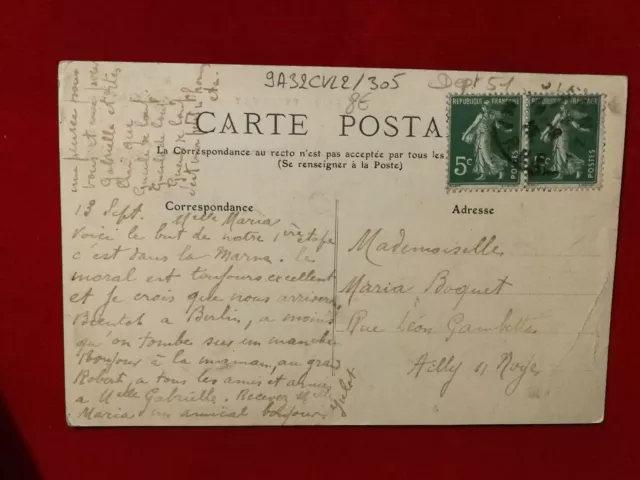 9A32CVL2/305
8E
Dept 51
CARTE POSTA
La Correspondance au recto n'est pas acceptée par tous les
(Se renseigner à la Poste)
RÉPUBLIQUE FRANÇAISE
5c
POSTES
RÉPUBLIQUE FRANÇAISE
5c
POSTES
Correspondance
Adresse
Sept. Melle Maria
Voici le but de notre 1ère étape
c'est dans la Marne. Le
moral est toujours excellent
et je crois que nous arriverons
Bientôt a Berlin, a moins
qu'on tombe sur un manche
Bonjour à la maman, au grand
Robert, a tous les amis et amies
a Melle Gabrielle. Recevez Melle
Maria un amical bonjour
Julot
une pensée pour
vous et une pour
Gabrielle et dites
lui que
Mademoiselle
Maria Boquet
Rue Léon Gambetta
Ailly s/ Noye